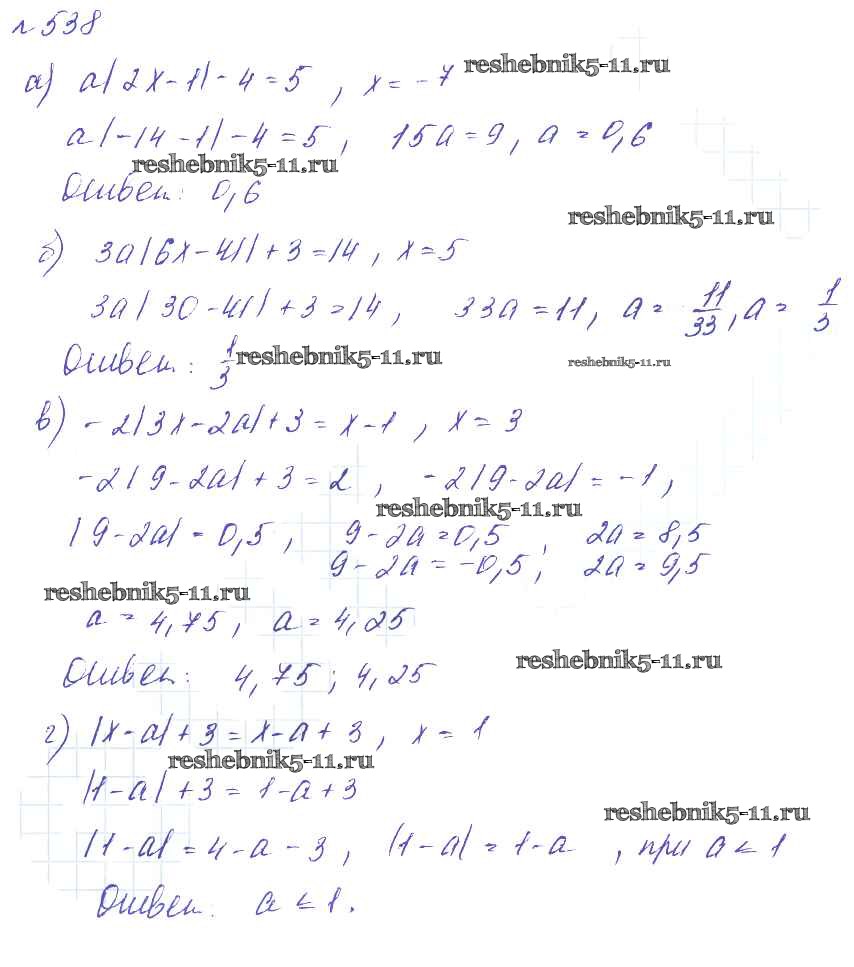 № 538
а) a|2x-1|-4=5, x=-7
reshebnik5-11.ru
a|-14-1|-4=5, 15a=9, a=0,6
reshebnik5-11.ru
Ответ: 0,6
reshebnik5-11.ru
б) 3a|6x-41|+3=14, x=5
3a|30-41|+3=14, 33a=11, a=11/33, a=1/3
Ответ: 1/3
reshebnik5-11.ru
reshebnik5-11.ru
в) -2|3x-2a|+3=x-1, x=3
-2|9-2a|+3=2, -2|9-2a|=-1,
reshebnik5-11.ru
|9-2a|=0,5, 9-2a=0,5, 2a=8,5
9-2a=-0,5; 2a=9,5
reshebnik5-11.ru
a=4,75, a=4,25
reshebnik5-11.ru
Ответ: 4,75; 4,25
г) |x-a|+3=x-a+3, x=1
reshebnik5-11.ru
|1-a|+3=1-a+3
reshebnik5-11.ru
|1-a|=4-a-3, |1-a|=1-a, при a≤1
Ответ: a≤1.